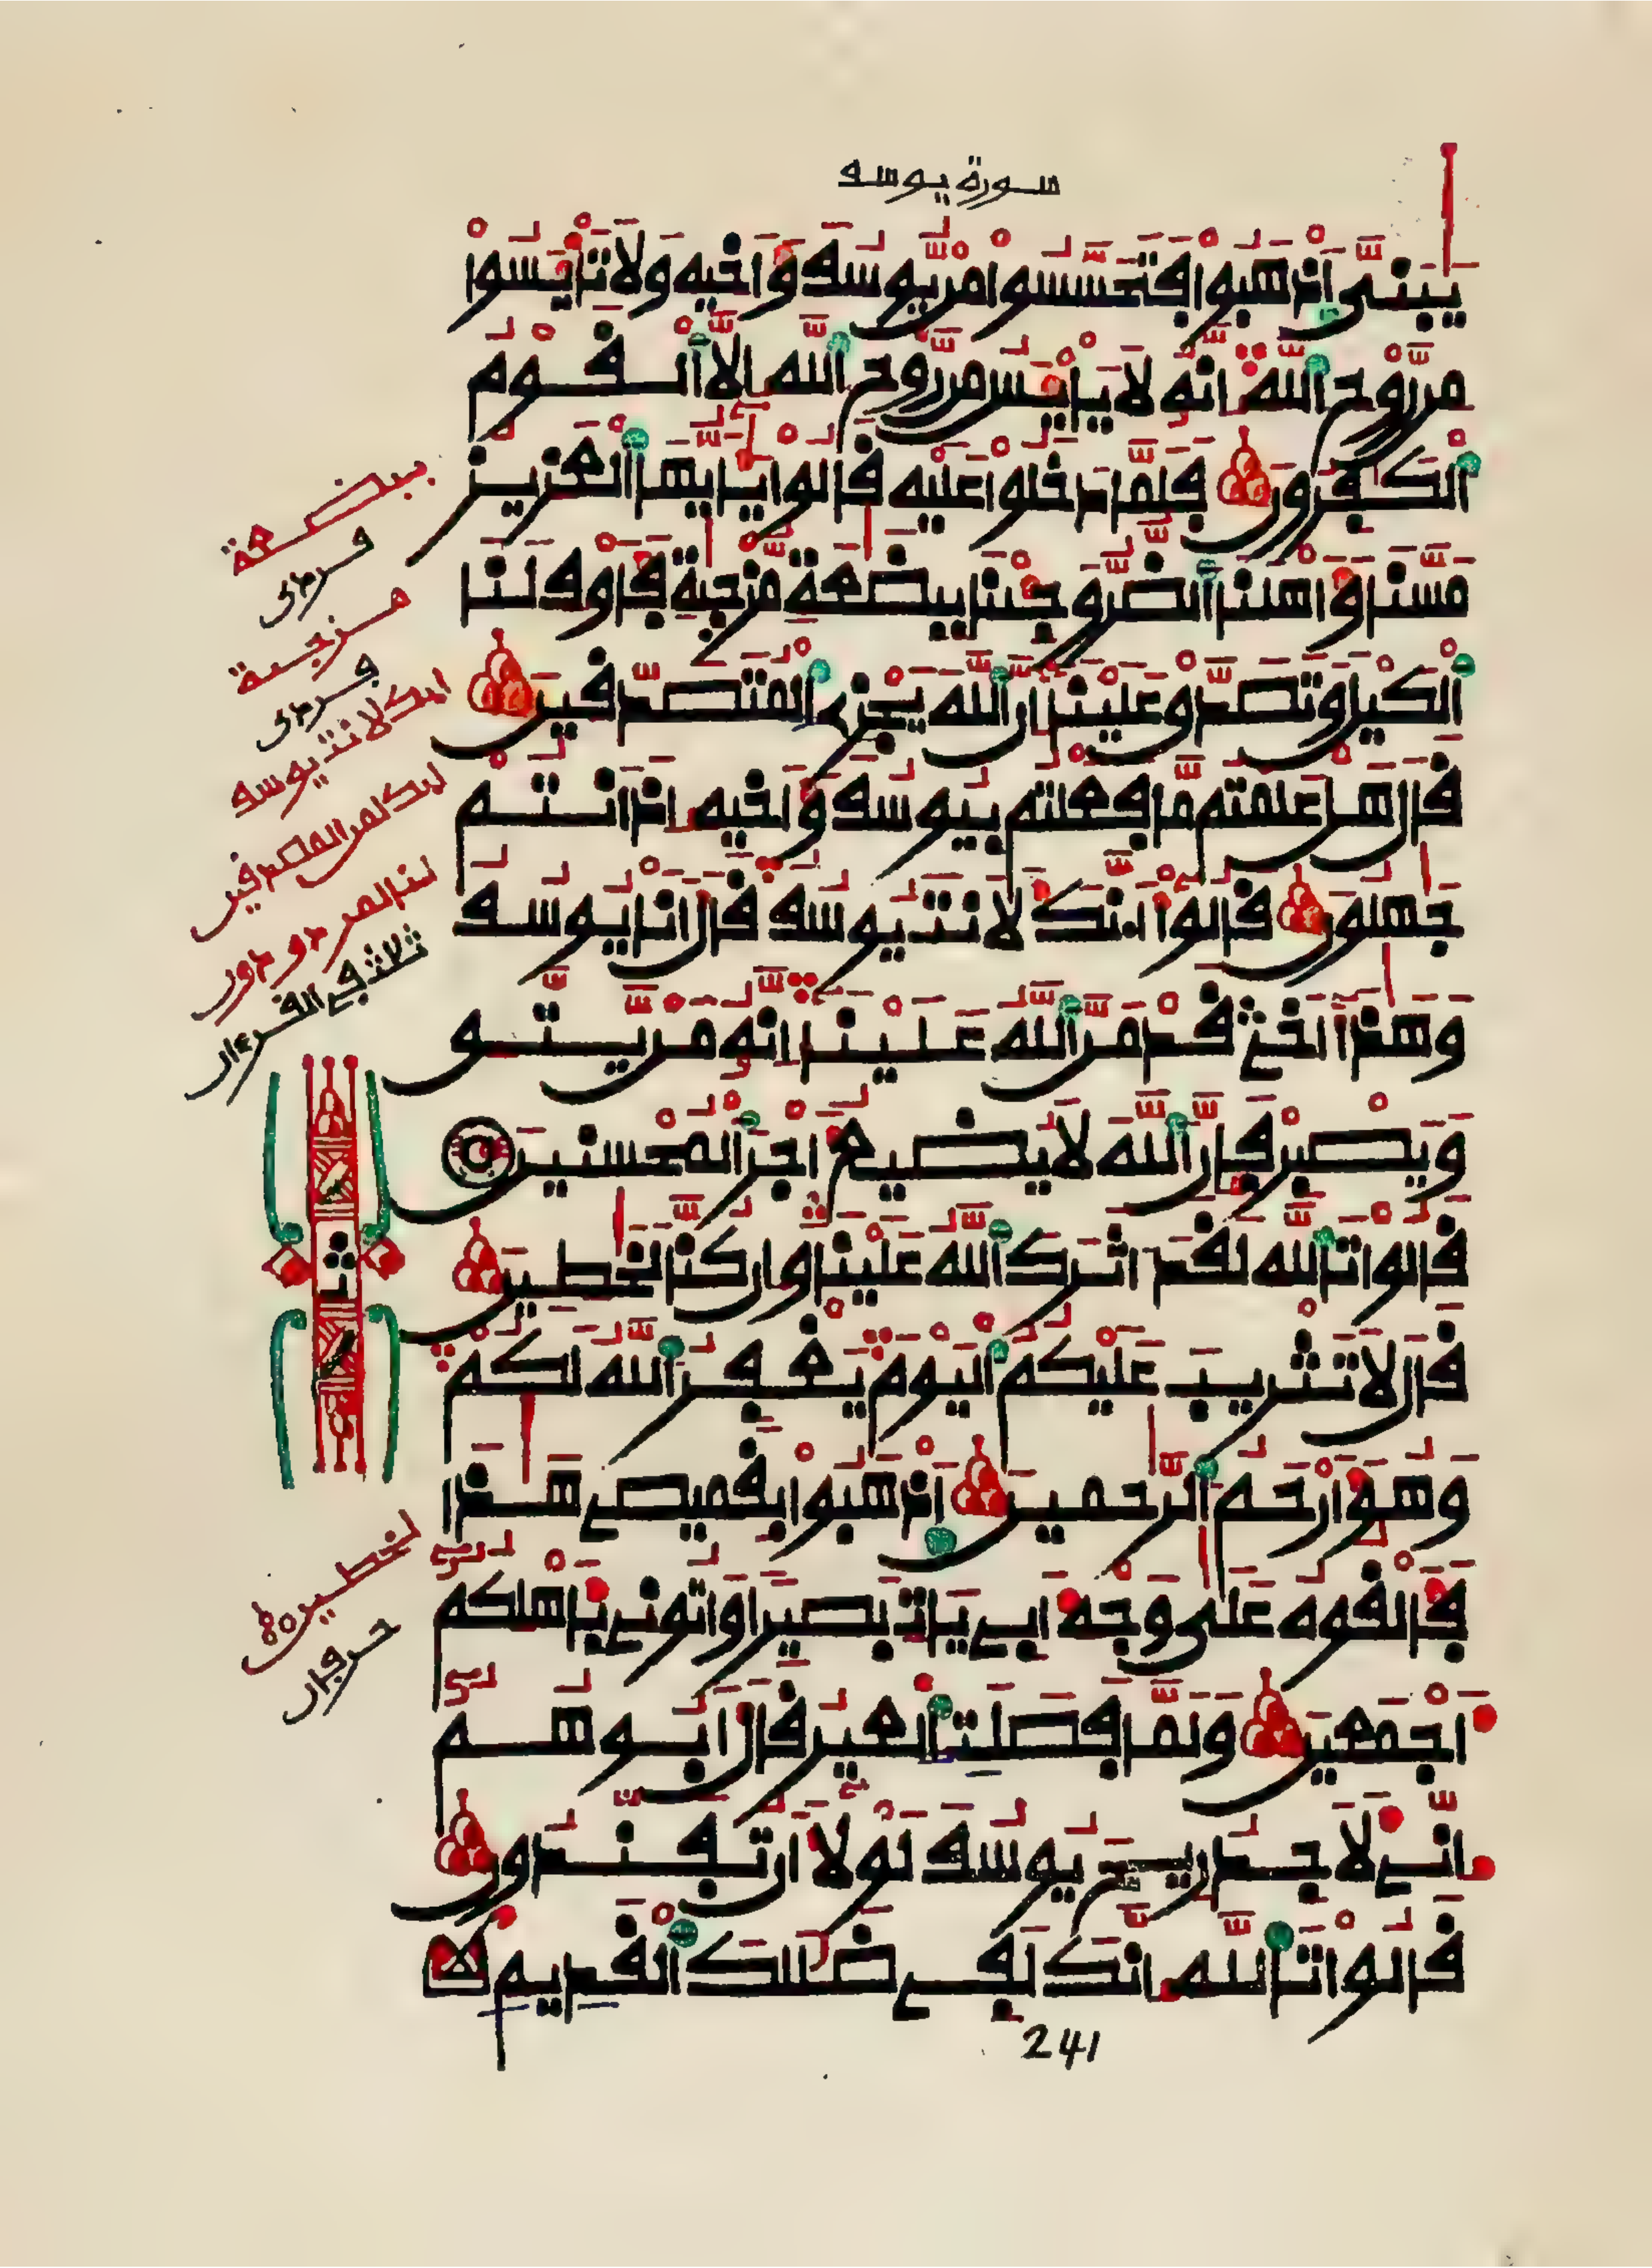 سورة يوسف
يَٰبَنِىَّ اَذْهَبُواْ فَتَحَسَّسُواْ مِن يُّوسُفَ وَأَخِيهِ وَلَا تَاْيْـَٔسُواْ
مِن رَّوْحِ اِللَّهِ إِنَّهُۥ لَا يَاْيْـَٔسُ مِن رَّوْحِ اِللَّهِ إِلَّا اَلْقَوْمُ
اُلْكَٰفِرُونَ فَلَمَّا دَخَلُواْ عَلَيْهِ قَالُواْ يَٰٓأَيُّهَا اَلْعَزِيزُ
مَسَّنَا وَأَهْلَنَا اَلضُّرُّ وَجِئْنَا بِبِضَٰعَةٍ مُّزْجَىٰةٍ فَأَوْفِ لَنَا
اَلْكَيْلَ وَتَصَدَّقْ عَلَيْنَا إِنَّ اَللَّهَ يَجْزِى اِلْمُتَصَدِّقِينَ
قَالَ هَلْ عَلِمْتُم مَّا فَعَلْتُم بِيُوسُفَ وَأَخِيهِ إِذْ أَنتُمْ
جَٰهِلُونَ قَالُوٓاْ أَ.نَّكَ لَأَنتَ يُوسُفُ قَالَ أَنَا يُوسُفُ
وَهَٰذَآ أَخِى قَدْ مَنَّ اَللَّهُ عَلَيْنَآ إِنَّهُۥ مَن يَّتَّقِ
وَيَصْبِرْ فَإِنَّ اَللَّهَ لَا يُضِيعُ أَجْرَ اَلْمُحْسِنِينَ
قَالُواْ تَاللَّهِ لَقَدْ ءَاثَرَكَ اَللَّهُ عَلَيْنَا وَإِن كُنَّا لَخَٰطِـِٕينَ
قَالَ لَا تَثْرِيبَ عَلَيْكُمُ اُلْيَوْمَ يَغْفِرُ اُللَّهُ لَكُمْ
وَهُوَ أَرْحَمُ اُلرَّٰحِمِينَ اَذْهَبُواْ بِقَمِيصِى هَٰذَا
فَأَلْقُوهُ عَلَىٰ وَجْهِ أَبِى يَاتِ بَصِيرًا وَاتُونِى بِأَهْلِكُمُۥٓ
أَجْمَعِينَ وَلَمَّا فَصَلَتِ اِلْعِيرُ قَالَ أَبُوهُمُۥٓ
إِنِّى لَأَجِدُ رِيحَ يُوسُفَ لَوْلَآ أَن تُفَنِّدُونِ
قَالُواْ تَاللَّهِ إِنَّكَ لَفِى ضَلَٰلِكَ اَلْقَدِيمِ
241
ببضعة
فردى
مزجية
فردى
انك لانت يوسف
لمن المصدقين
ثلاث في القرءان
ث
لخطين
حرفان